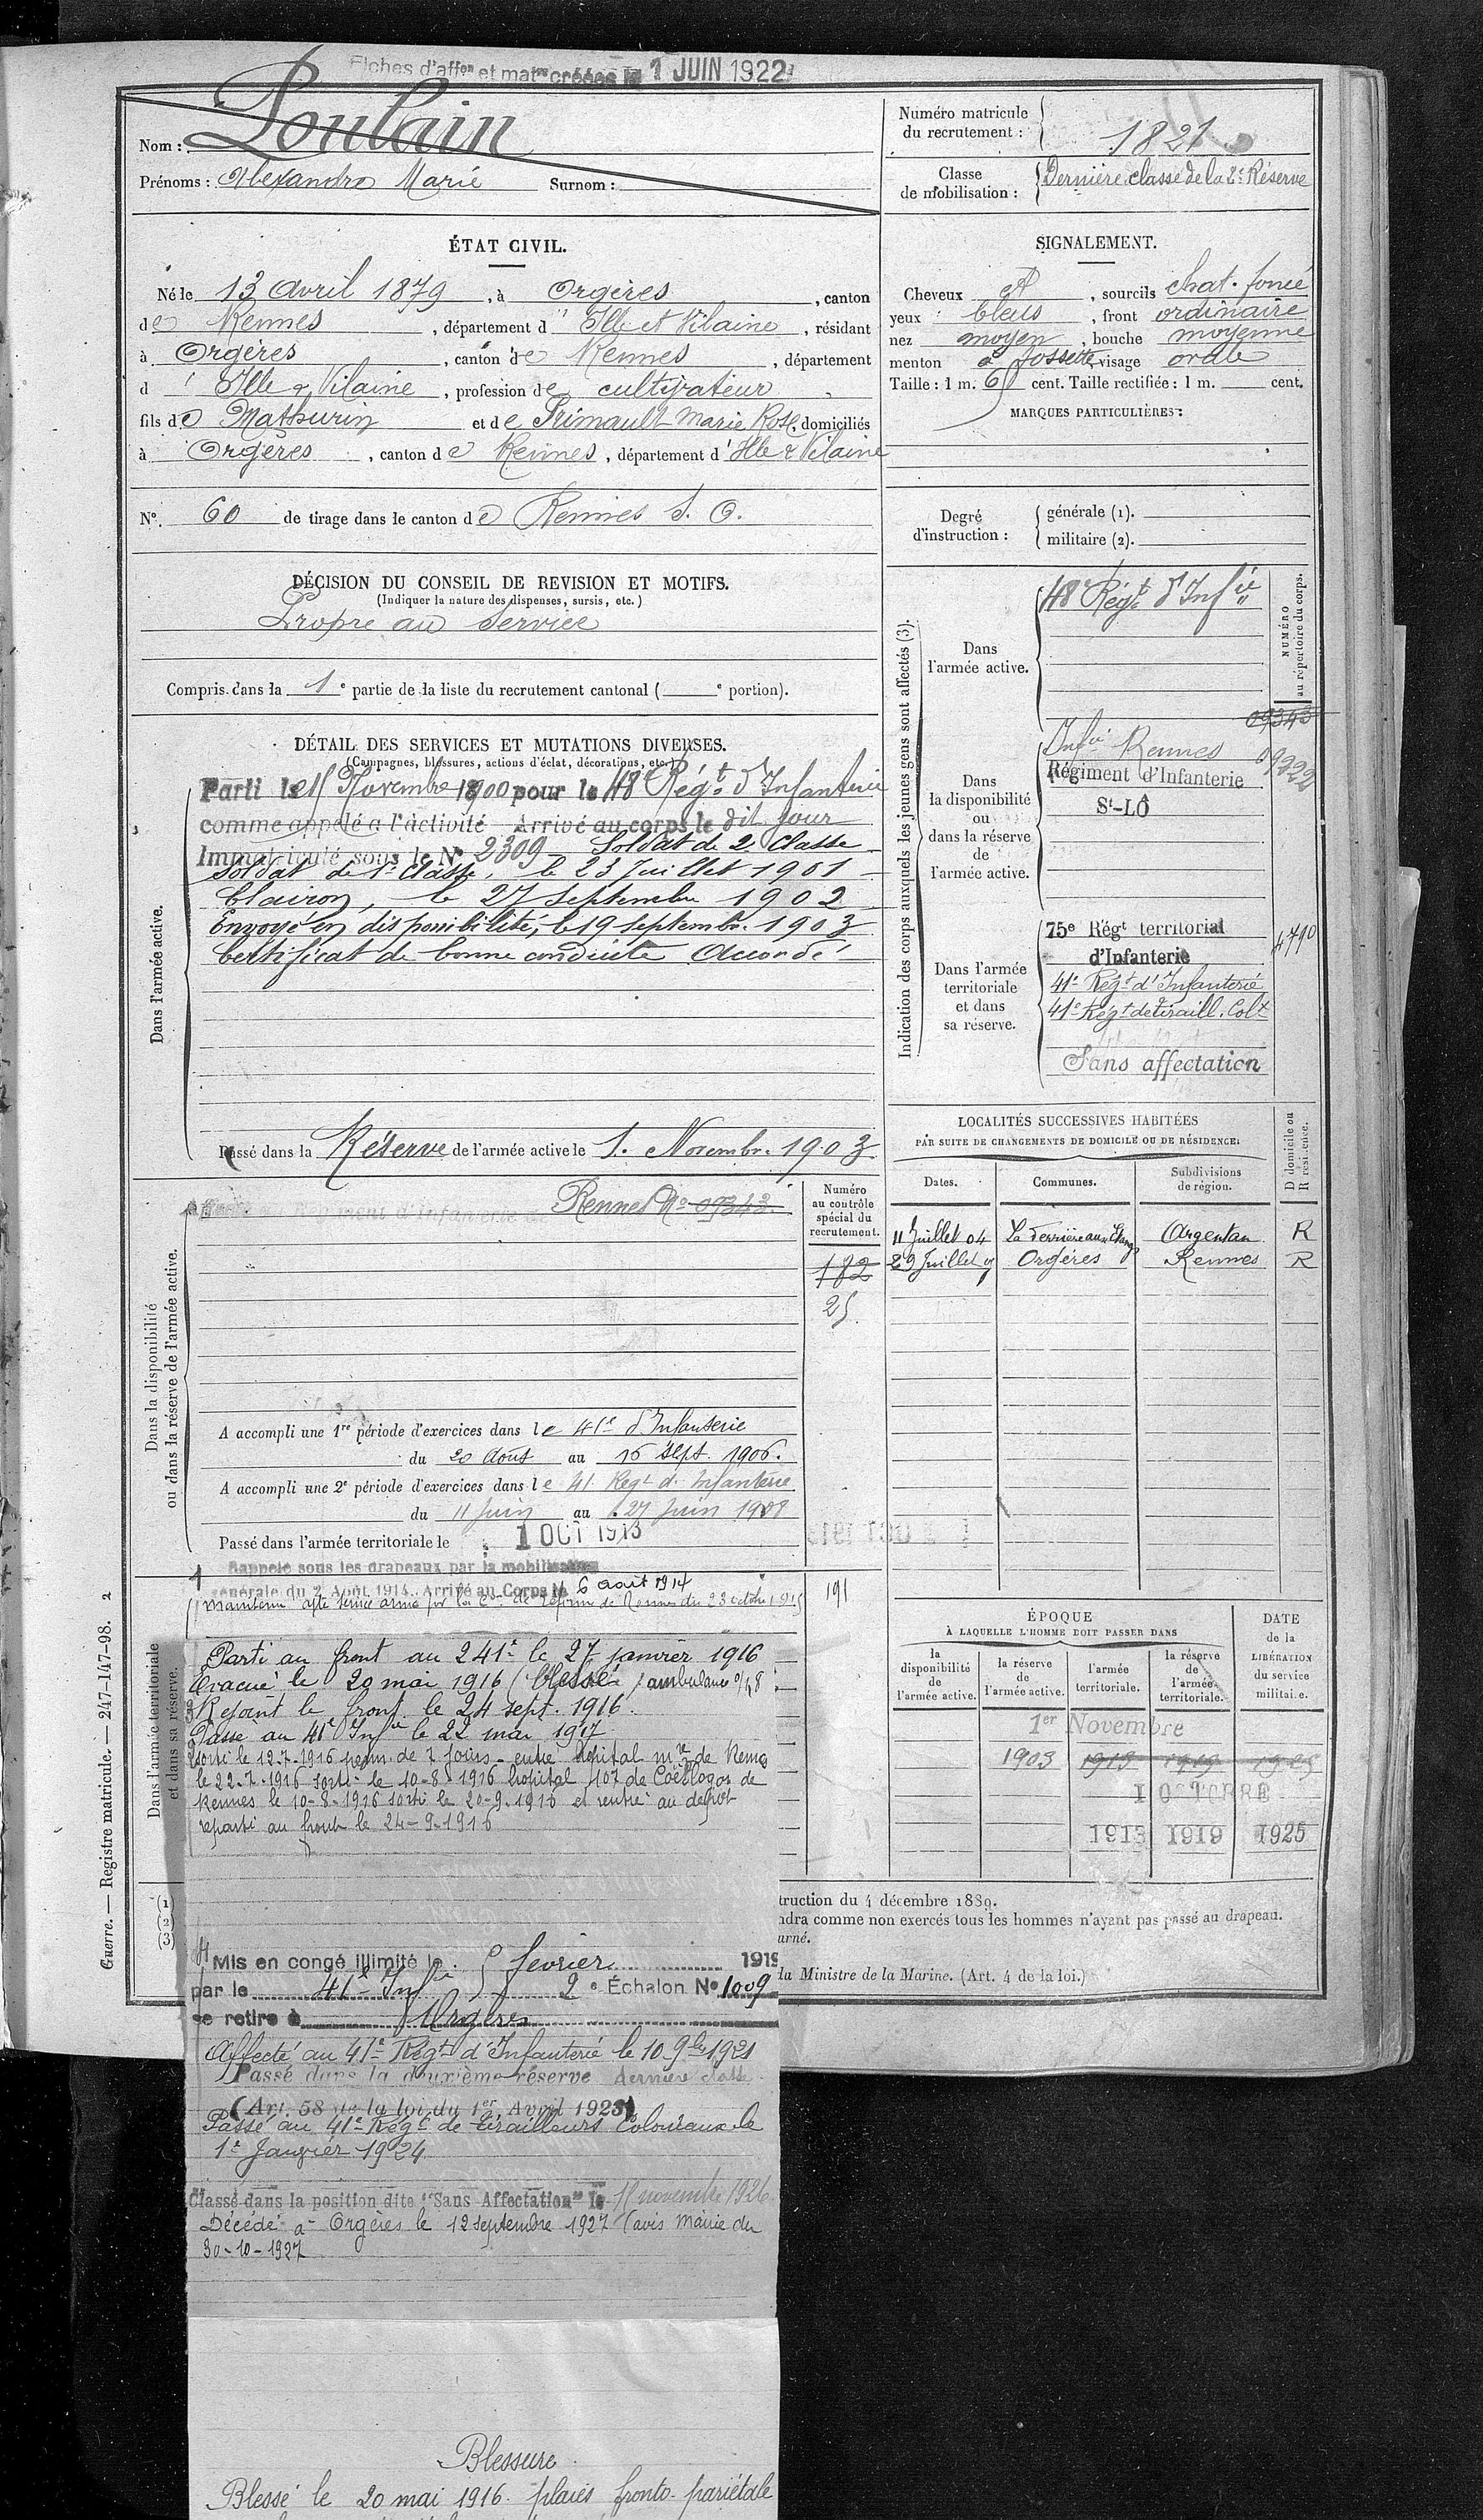 Fiches d'aff^on et mat^re créées le 1 JUIN 1922
Nom : Poulain
Prénoms : Alexandre Marie Surnom :
Numéro matricule du recrutement : 1821
Classe de mobilisation : Dernière classe de la 2e Réserve
ÉTAT CIVIL.
Né le 13 Avril 1879, à Orgères, canton
de Rennes, département d' Ille et Vilaine, résidant
à Orgères, canton de Rennes, département
d' Ille & Vilaine, profession de cultivateur
fils de Mathurin et de Primault Marie Rose, domiciliés
à Orgères, canton de Rennes, département d' Ille & Vilaine
N° 60 de tirage dans le canton de Rennes S. O.
SIGNALEMENT.
Cheveux et, sourcils chat. foncé
yeux bleus, front ordinaire
nez moyen, bouche moyenne
menton à fossette, visage ovale
Taille : 1 m. 61 cent. Taille rectifiée : 1 m. cent.
MARQUES PARTICULIÈRES :
Degré d'instruction : générale (1).
militaire (2).
DÉCISION DU CONSEIL DE REVISION ET MOTIFS.
(Indiquer la nature des dispenses, sursis, etc.)
Propre au service
Compris dans la 1e partie de la liste du recrutement cantonal ( e portion).
DÉTAIL DES SERVICES ET MUTATIONS DIVERSES.
(Campagnes, blessures, actions d'éclat, décorations, etc.)
Dans l'armée active.
Parti le 15 Novembre 1900 pour le 48e Régt d'Infanterie
comme appelé à l'activité Arrivé au corps le dit jour
Immatriculé sous le N° 2309 Soldat de 2e classe
Soldat de 1e classe, le 23 Juillet 1901
Clairon, le 27 septembre 1902
Envoyé en disponibilité, le 19 septembre 1903
Certificat de bonne conduite Accordé
Passé dans la Réserve de l'armée active le 1. Novembre 1903
Indication des corps auxquels les jeunes gens sont affectés (3).
NUMÉRO au répertoire du corps.
Dans l'armée active.
48e Régt d'Infie
Dans la disponibilité ou dans la réserve de l'armée active.
09343
Infie Rennes
Régiment d'Infanterie
09222
St-LÔ
Dans l'armée territoriale et dans sa réserve.
75e Régt territorial
d'Infanterie
4790
41e Régt d'Infanterie
41e Régt de tiraill. Colx
Sans affectation
Dans la disponibilité ou dans la réserve de l'armée active.
Affecté au Régiment d'Infanterie de Rennes No 09343
Numéro au contrôle spécial du recrutement.
182
25
A accompli une 1re période d'exercices dans le 41e d'Infanterie
du 20 Août au 16 sept. 1906.
A accompli une 2e période d'exercices dans le 41 Régt d. Infanterie
du 11 Juin au 27 Juin 1908
Passé dans l'armée territoriale le 1 OCT 1913
LOCALITÉS SUCCESSIVES HABITÉES
PAR SUITE DE CHANGEMENTS DE DOMICILE OU DE RÉSIDENCE.
Dates. Communes. Subdivisions de région. D domicile ou R résidence.
11 Juillet 04 La Ferrière aux Etangs Argentan R
29 Juillet Orgères Rennes R
Dans l'armée territoriale et dans sa réserve.
Rappelé sous les drapeaux par la mobilisation
générale du 2 Août 1914. Arrivé au Corps le 6 août 1914
Maintenu apte service armé par la Con de réforme de Rennes du 23 octobre 1915
191
Parti au front au 241e le 27 janvier 1916
Evacué le 20 mai 1916 (blessé) ambulance
Rejoint le front le 24 sept. 1916.
Passé au 41e Infie le 22 mai 1917
sorti le 12-7-1916 perm. de 7 jours - entré hôpital mre de Rennes
le 22-7-1916 sorti le 10-8-1916 hôpital 107 de Coëtlogon de
Rennes le 10-8-1916 sorti le 20-9-1916 et rentré au dépôt
reparti au front le 24-9-1916
ÉPOQUE
À LAQUELLE L'HOMME DOIT PASSER DANS
la disponibilité de l'armée active. la réserve de l'armée active. l'armée territoriale. la réserve de l'armée territoriale.
DATE de la LIBÉRATION du service militaire.
1er Novembre
1903 1913 1919 1925
1 OCTOBRE
1913 1919 1925
(1)
(2)
(3)
truction du 4 décembre 1889.
ndra comme non exercés tous les hommes n'ayant pas passé au drapeau.
urné.
du Ministre de la Marine. (Art. 4 de la loi.)
Guerre. — Registre matricule. — 247-147-98. 2
Mis en congé illimité le 5 fevrier 1919
par le 41e Infie 2e Échelon N° 1009
se retire à Orgères
Affecté au 41e Régt d'Infanterie le 10 9bre 1921
Passé dans la deuxième réserve dernière classe
(Art. 58 de la loi du 1er Avril 1923)
Passé au 41e Régt de tirailleurs Coloniaux le
1e Janvier 1924
Classé dans la position dite "Sans Affectation" le 15 novembre 1926
Décédé à Orgères le 12 septembre 1927 (avis Mairie du
30-10-1927
Blessure
Blessé le 20 mai 1916. plaies fronto-pariétale